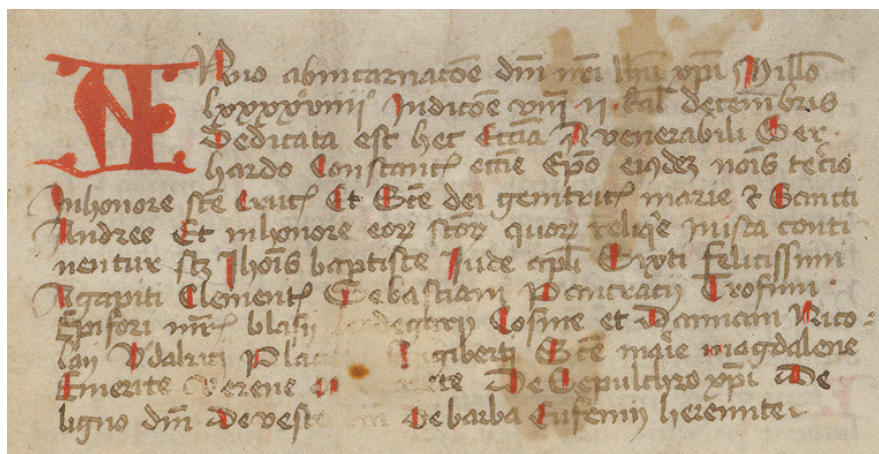 Anno abincarnacōe dnī nrī Ihū xpī Millo
lxxxxviiii° Indicōe viii ii · kal decembris
Dedicata est hec Ecclīa A venerabili Ger
hardo Constant eccīe Epō eiusdez noīs tercio
Inhonore scē Crucꝭ Et Scē dei genitricꝭ marie ⁊ Sancti
Andree Et inhonore eorꝝ scōrꝝ quorꝝ reliqͥe iuxta conti
nentur scꝫ Ihōis baptiste Jude apłi Sixti felicissimi
Agapiti Clementꝭ Sebastiani Pancratij Trofimi ·
Epifori mrꝭ blasij Cosme et Damiani Nico
laij Vdalrici Scē marie magdalene
Emerite Verene De Sepulchro xpī De
ligno dnī De veste De barba Eufemij heremite